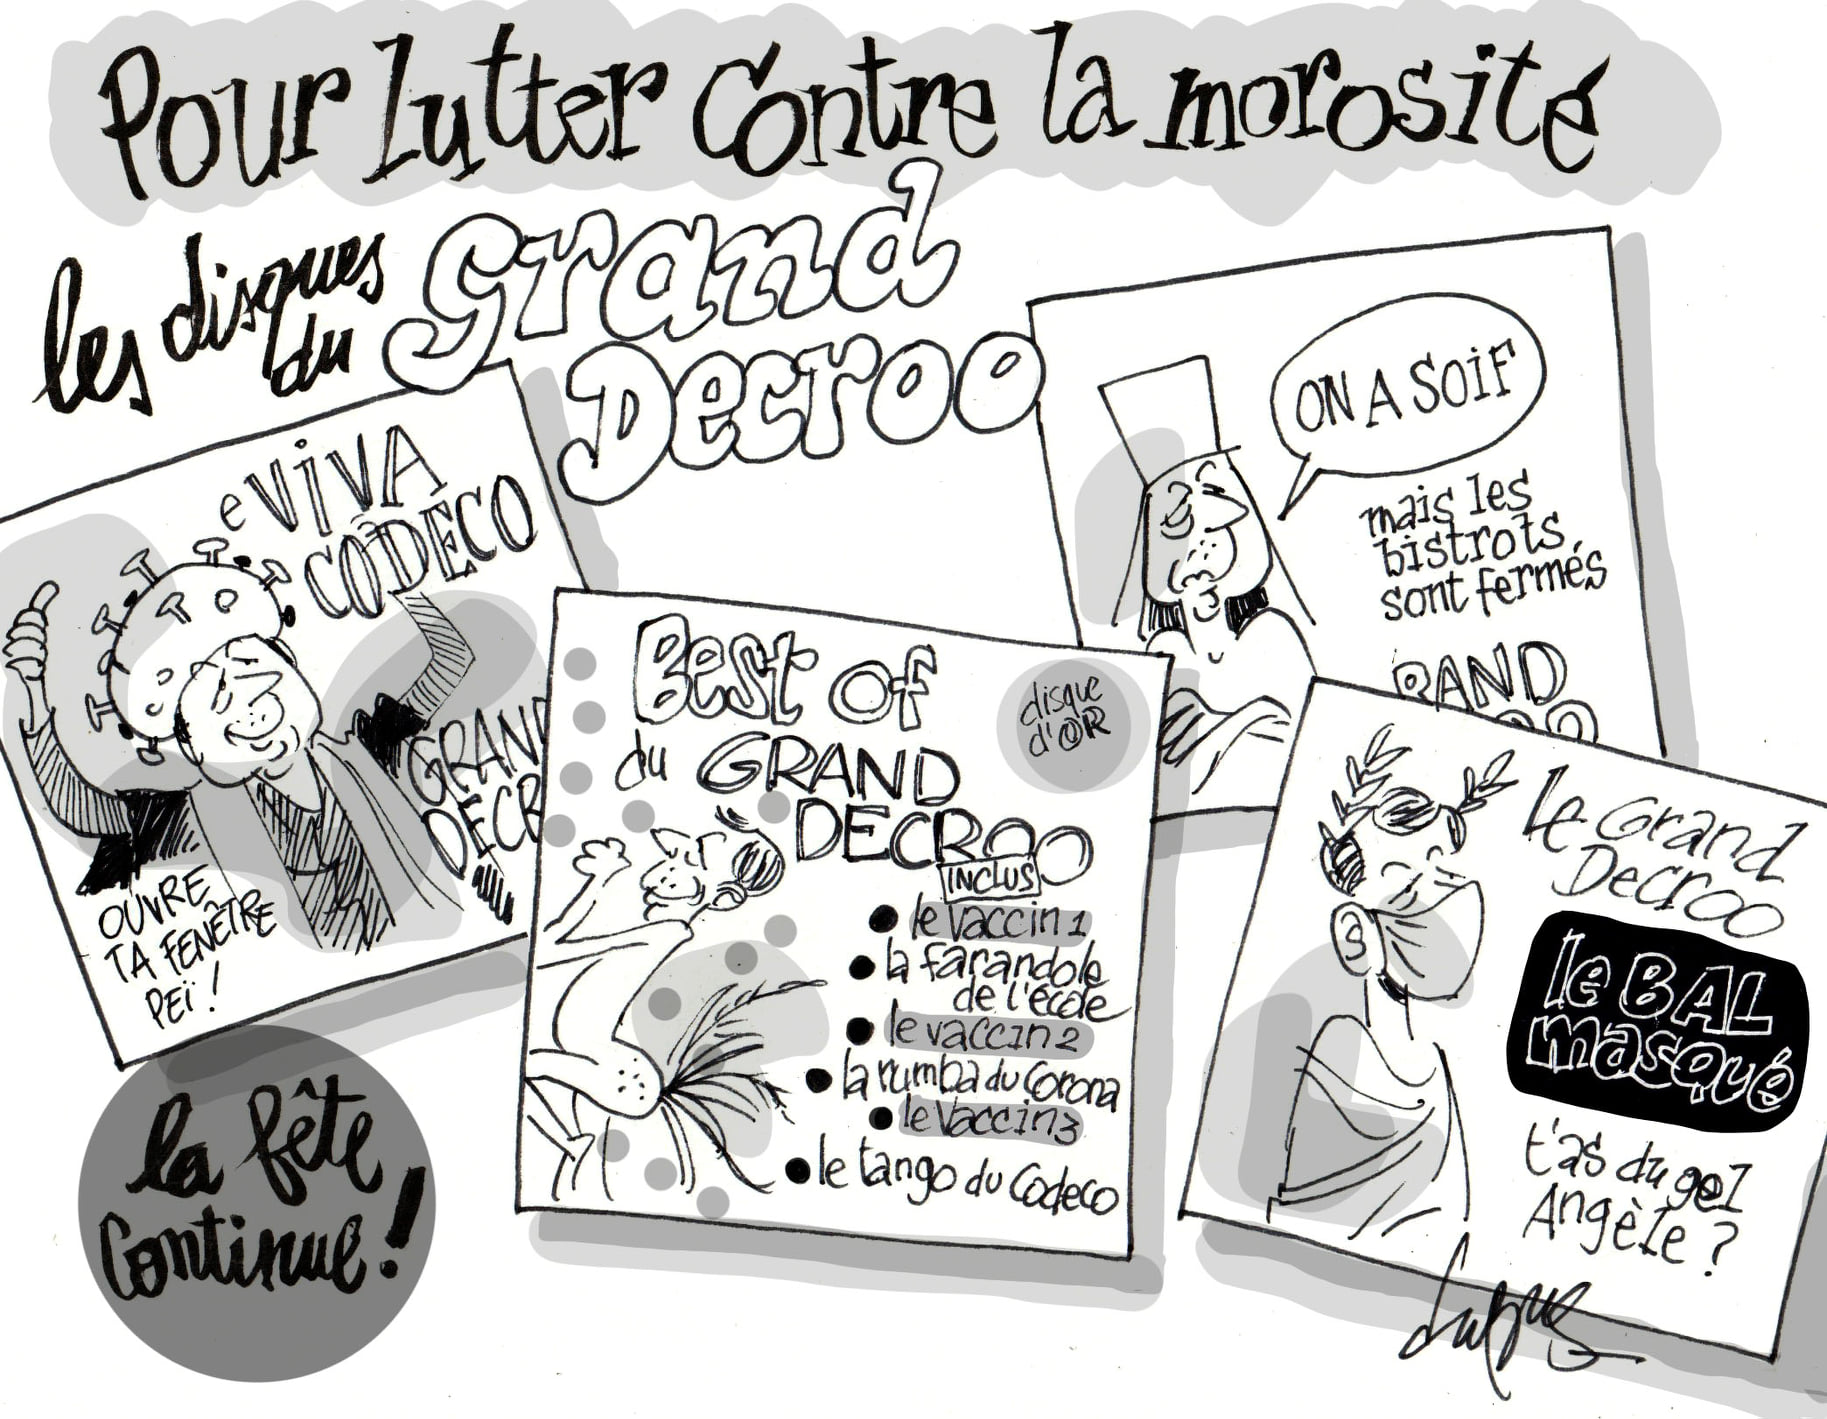 Pour lutter contre la morosité
les disques
du
Grand
Decroo
e VIVA
CODECO
GRAND
DECR
OUVRE
TA FENÊTRE
PEÏ !
ON A SOIF
mais les
bistrots
sont fermés
RAND
Best of
du GRAND
DECROO
disque
d'OR
INCLUS
● le vaccin 1
● la farandole
de l'école
● le vaccin 2
● la rumba du Corona
● le vaccin 3
● le tango du Codeco
Le Grand
Decroo
le BAL
masqué
t'as du gel
Angèle ?
la fête
continue !